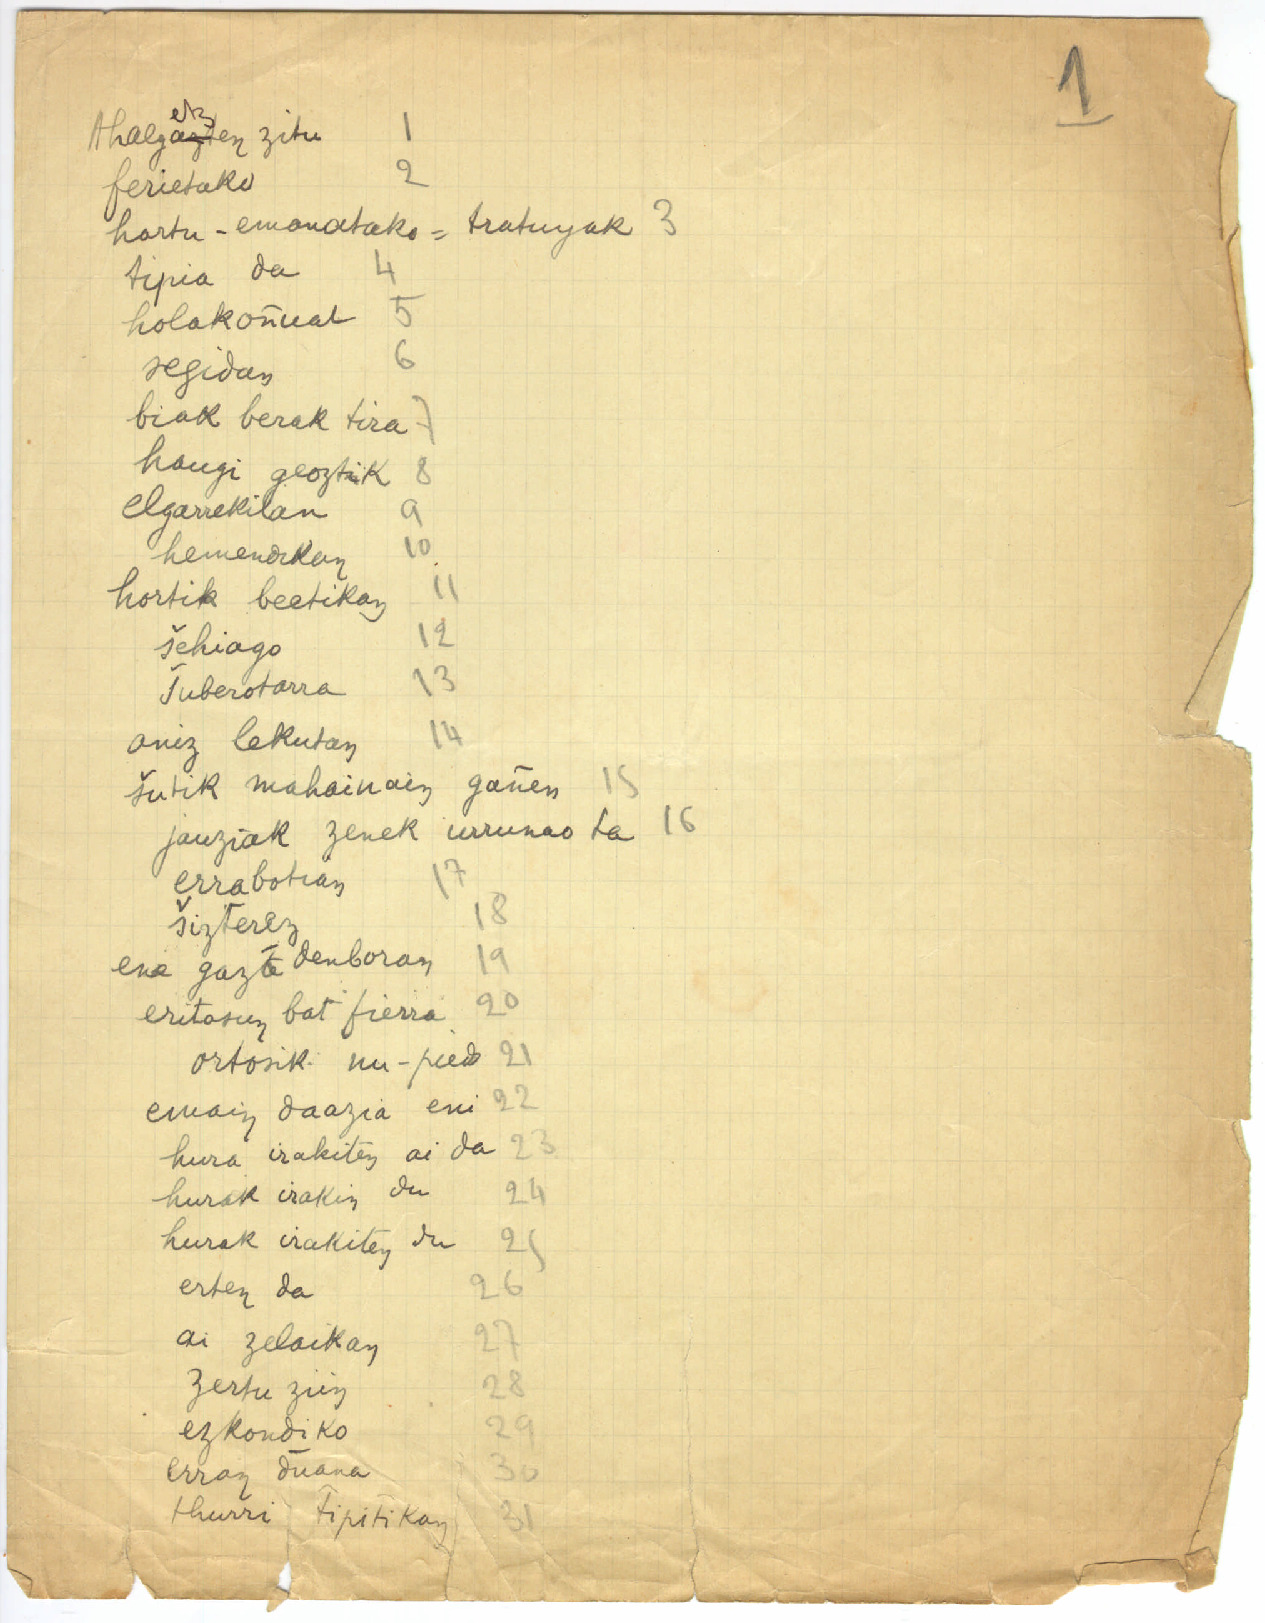 1
Ahalgetzen zitu 1
ferietako 2
hartu - emanatako = tratuyak 3
tipia da 4
holakoñuat 5
segidan 6
biak berak tira 7
haugi geoztik 8
elgarrekilan 9
hemendikan 10
hortik beetikan 11
šehiago 12
Šuberotarra 13
aniz lekutan 14
šutik mahainain gañen 15
jauziak zenek urrunao ta 16
errabotian 17
šizterez 18
ene gazte denboran 19
eritasun bat fierra 20
ortosik nu-pieds 21
emain daazia eni 22
hura irakiten ai da 23
hurak irakin du 24
hurak irakiten du 25
erten da 26
ai zelaikan 27
zertu ziin 28
ezkondiko 29
erran duana 30
thurri tipitikan 31